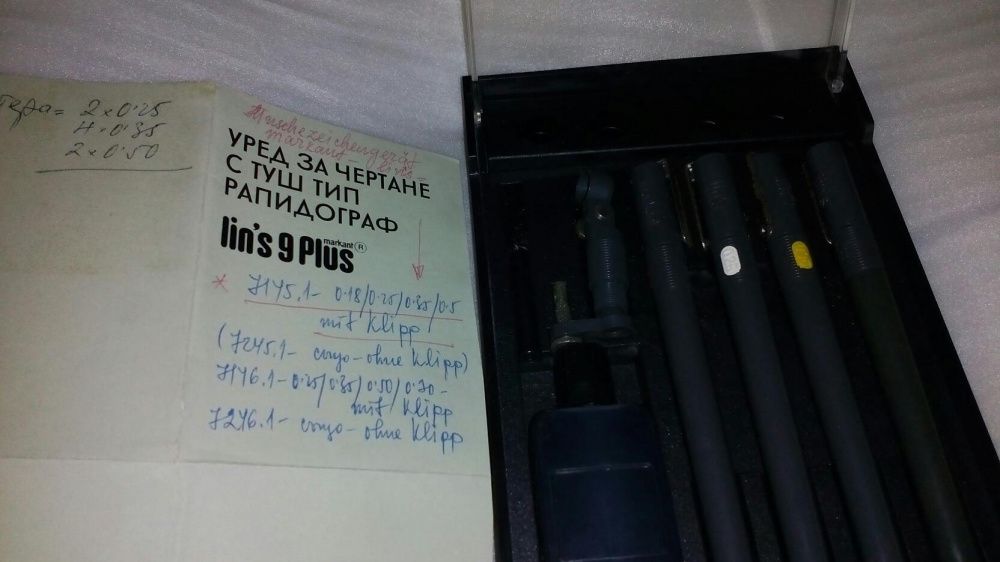 = 2 x 0.25
4 x 0.35
2 x 0.50
Tuschezeichengerät
markant -
УРЕД ЗА ЧЕРТАНЕ
С ТУШ ТИП
РАПИДОГРАФ
lin's 9 Plus markant ®
* 7145.1 - 0.18/0.25/0.35/0.5
mit Klipp
(7245.1 - също - ohne Klipp)
7146.1 - 0.25/0.35/0.50/0.70 -
mit Klipp
7246.1 - също - ohne Klipp